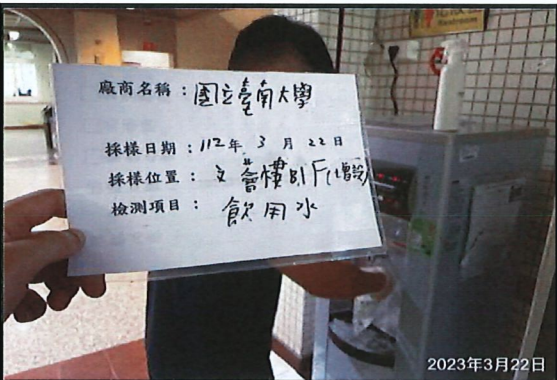 Restroom
廠商名稱：國立臺南大學
採樣日期：112年 3 月 22 日
採樣位置：文薈樓B1F(增設)
檢測項目：飲用水
2023年3月22日